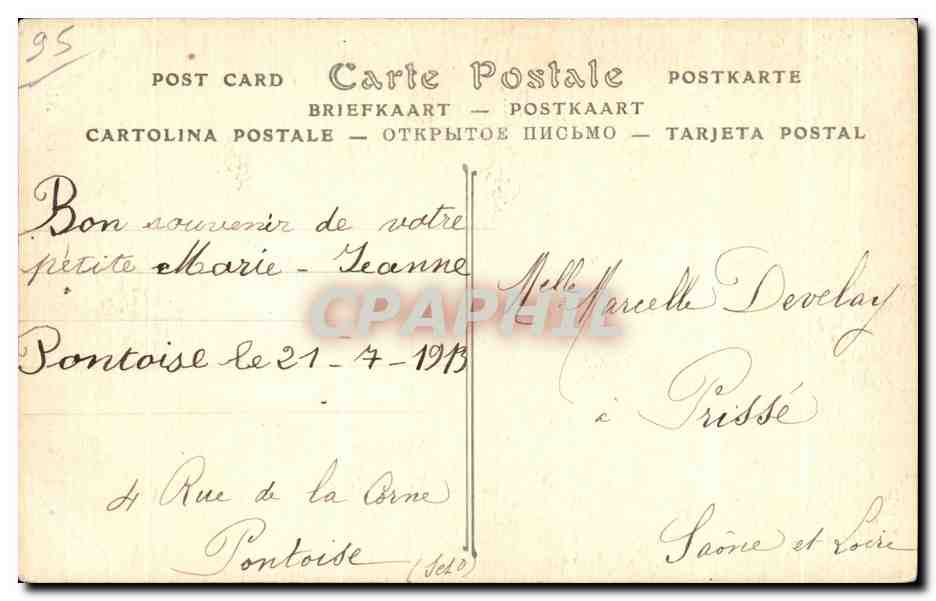 95
POST CARD Carte Postale POSTKARTE
BRIEFKAART — POSTKAART
CARTOLINA POSTALE — ОТКРЫТОЕ ПИСЬМО — TARJETA POSTAL
Bon souvenir de votre
pétite Marie - Jeanne
Pontoise le 21 - 7 - 1913
4 Rue de la Corne
Pontoise (SetO)
Melle Marcelle Develay
à Prissé
Saône et Loire
CPAPHIL